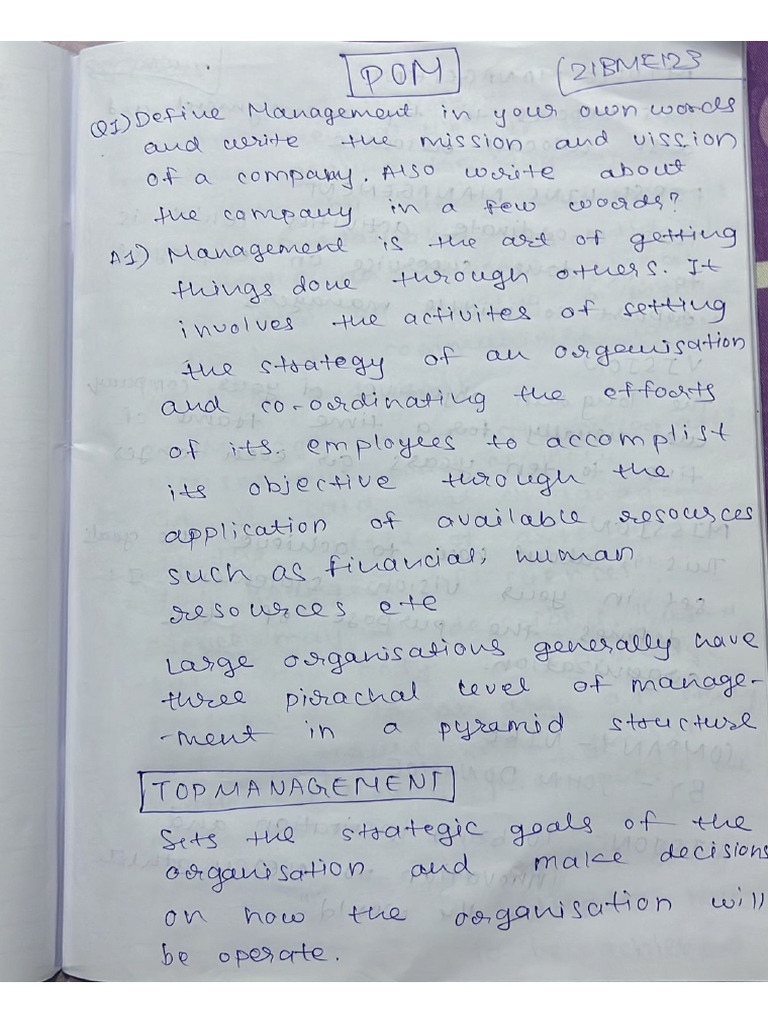 POM
21BME123
Q1) Define Management in your own words
and write the mission and vission
of a company. Also write about
the company in a few words?
A1) Management is the art of getting
things done through others. It
involves the activites of setting
the strategy of an organisation
and co-ordinating the efforts
of its. employees to accomplist
its objective through the
application of available resources
such as financial, human
resources etc
Large organisations generally have
three pirachal level of manage-
-ment in a pyramid structure
TOP MANAGEMENT
Sets the strategic goals of the
organisation and make decisions
on how the organisation will
be operate.